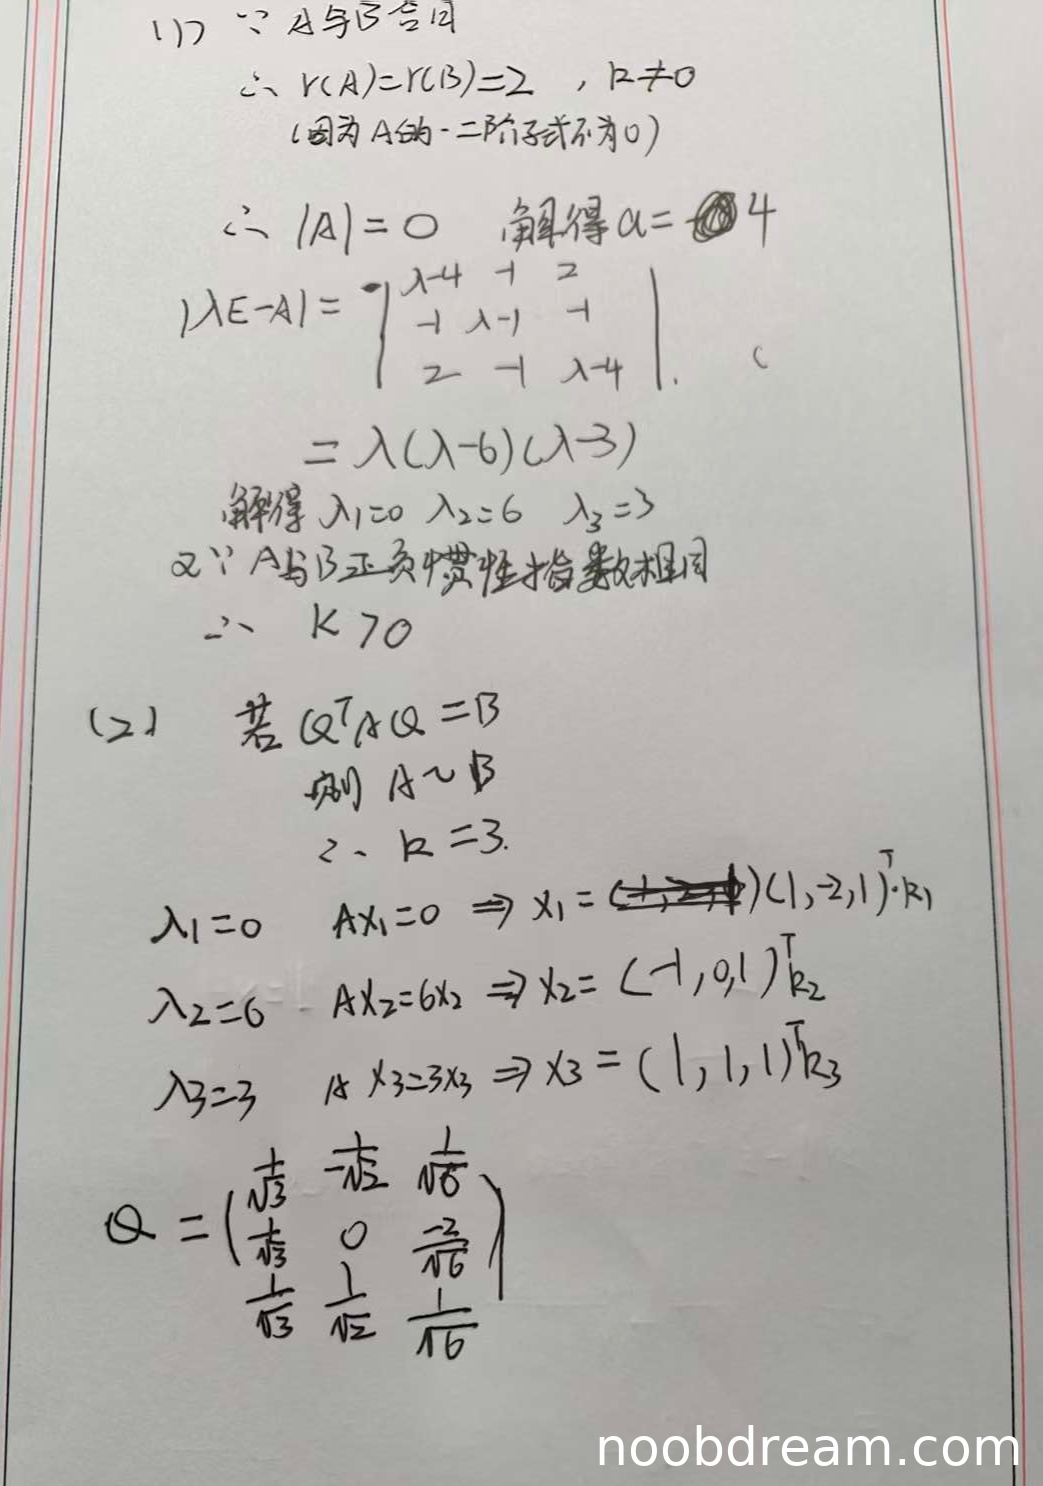 (1) ∵ A与B合同
∴ r(A)=r(B)=2 , k≠0
(因为A的一二阶子式不为0)
∴ |A|=0 解得 a= 4
|λE-A|= | λ-4 -1 2
-1 λ-1 -1
2 -1 λ-4 | .
= λ(λ-6)(λ-3)
解得 λ1=0 λ2=6 λ3=3
又∵ A与B正负惯性指数相同
∴ k>0
(2) 若 QᵀAQ=B
则 A~B
∴ k=3.
λ1=0 Ax1=0 ⇒ x1= (1,-2,1)ᵀ·k1
λ2=6 Ax2=6x2 ⇒ x2= (-1,0,1)ᵀk2
λ3=3 Ax3=3x3 ⇒ x3= (1,1,1)ᵀk3
Q = ( 1/√3 -1/√2 1/√6
1/√3 0 -2/√6
1/√3 1/√2 1/√6 )
noobdream.com